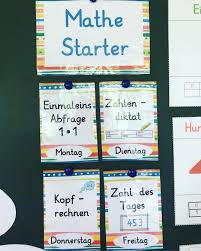 Mathe
Starter
Einmaleins
Abfrage
1•1
Montag
Zahlen-
diktat
Dienstag
Kopf-
rechnen
Donnerstag
Zahl des
Tages
453
Freitag
Hu